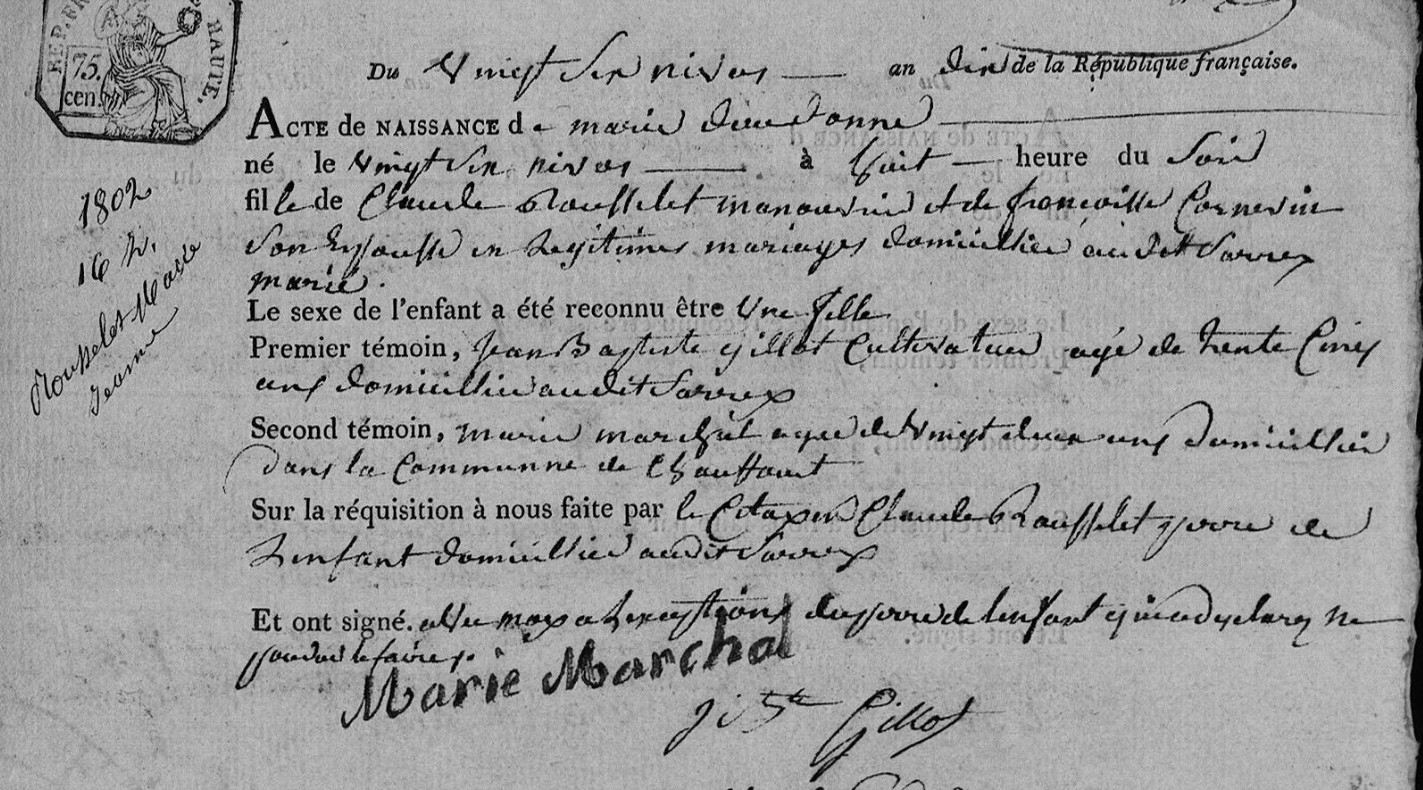 REP. FRA
HAUTE.
75.
cen.
Du vingt Six nivos an dix de la République française.
ACTE de NAISSANCE de marie dieu donne
né le vingt Six nivos à huit heure du Soir
fille de Claude Rousselet manouvrié et de françoisse Cornevin
Son Epousse en Legitimes mariages domicillié audit Sarrey
marié.
Le sexe de l'enfant a été reconnu être une fille
Premier témoin, Jean Baptiste gillot Cultivateur agé de trente Cinq
ans domicillié audit Sarrey
Second témoin, marie marchal agée de vingt deux ans domicillié
dans la Communne de Chauffourt
Sur la réquisition à nous faite par le Citoyen Claude Rousselet perre de
Lenfant domicillié audit Sarrey
Et ont signé. avec moy a Lexeption du perre de Lenfant qui a declarey ne
savoir le faire.
Marie Marchal
J Bte Gillot
1802
16 h.
Rousselet Marie
Jeanne